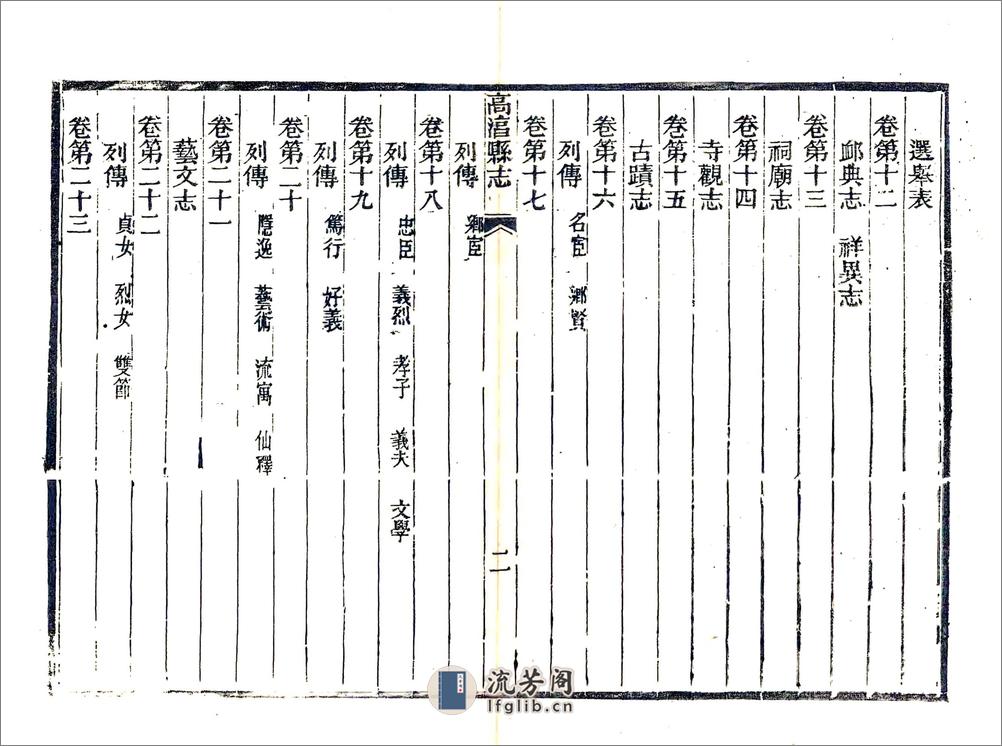 選舉表
卷第十二
卹典志　祥異志
卷第十三
祠廟志
卷第十四
寺觀志
卷第十五
古蹟志
卷第十六
列傳　名宦　鄉賢
卷第十七
高淳縣志
二
列傳　鄉宦
卷第十八
列傳　忠臣　義烈　孝子　義夫　文學
卷第十九
列傳　篤行　好義
卷第二十
列傳　隱逸　藝術　流寓　仙釋
卷第二十一
藝文志
卷第二十二
列傳　貞女　烈女　雙節
卷第二十三
流芳阁
lfglib.cn